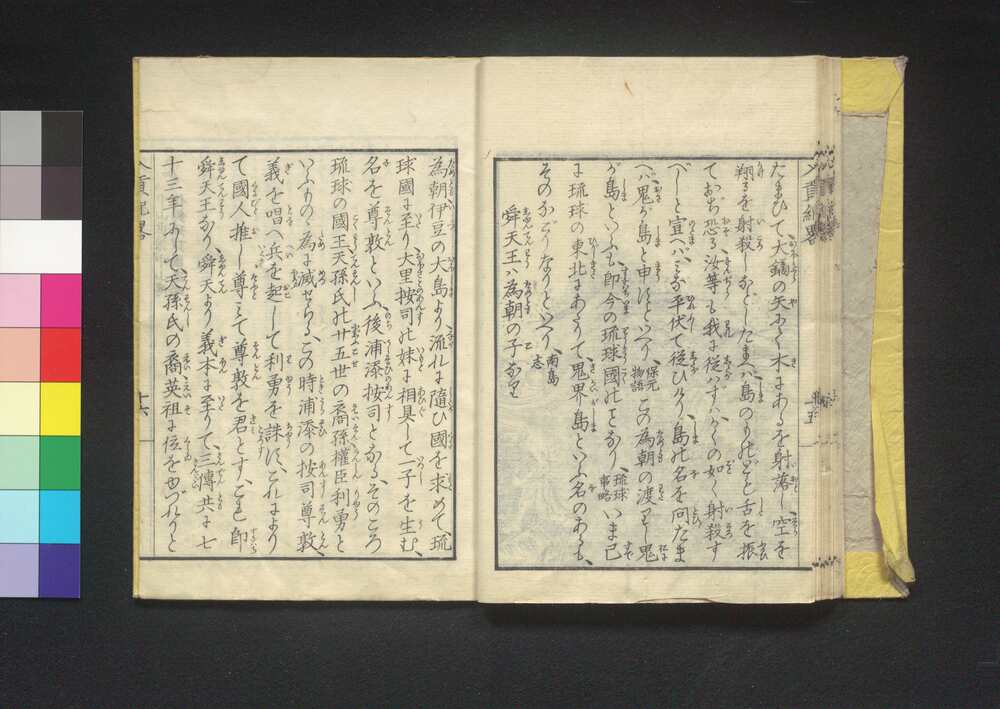 たまひて大鏑の矢にて木にあるを射落し空を
翔るを射殺しなどしたまへバ島のものども舌を振
ておぢ恐る汝等も我に従ハずハかくの如く射殺す
べしと宣へバみな平伏て従ひけり島の名を問たま
へバ鬼が島と申すといへり保元物語この為朝の渡りし鬼
が島といふハ即今の琉球國のことなり琉球事略いま已
に琉球の東北にあたりて鬼界島といふ名のあるも
そのなごりなりといへり南島志
舜天王ハ為朝の子なり
為朝伊豆の大島より流れに隨ひ國を求めて琉
球國に至り大里按司の妹に相具して一子を生む
名を尊敦といふ後浦添按司となるそのころ
琉球の國王天孫氏の廿五世の裔孫權臣利勇と
いふものゝ為に滅せらるこの時浦添の按司尊敦
義を唱へ兵を起して利勇を誅すこれにより
て國人推し尊みて尊敦を君とすこれ即
舜天王なり舜天より義本に至りて三傳共に七
十三年にして天孫氏の裔英祖に位をゆづれりと